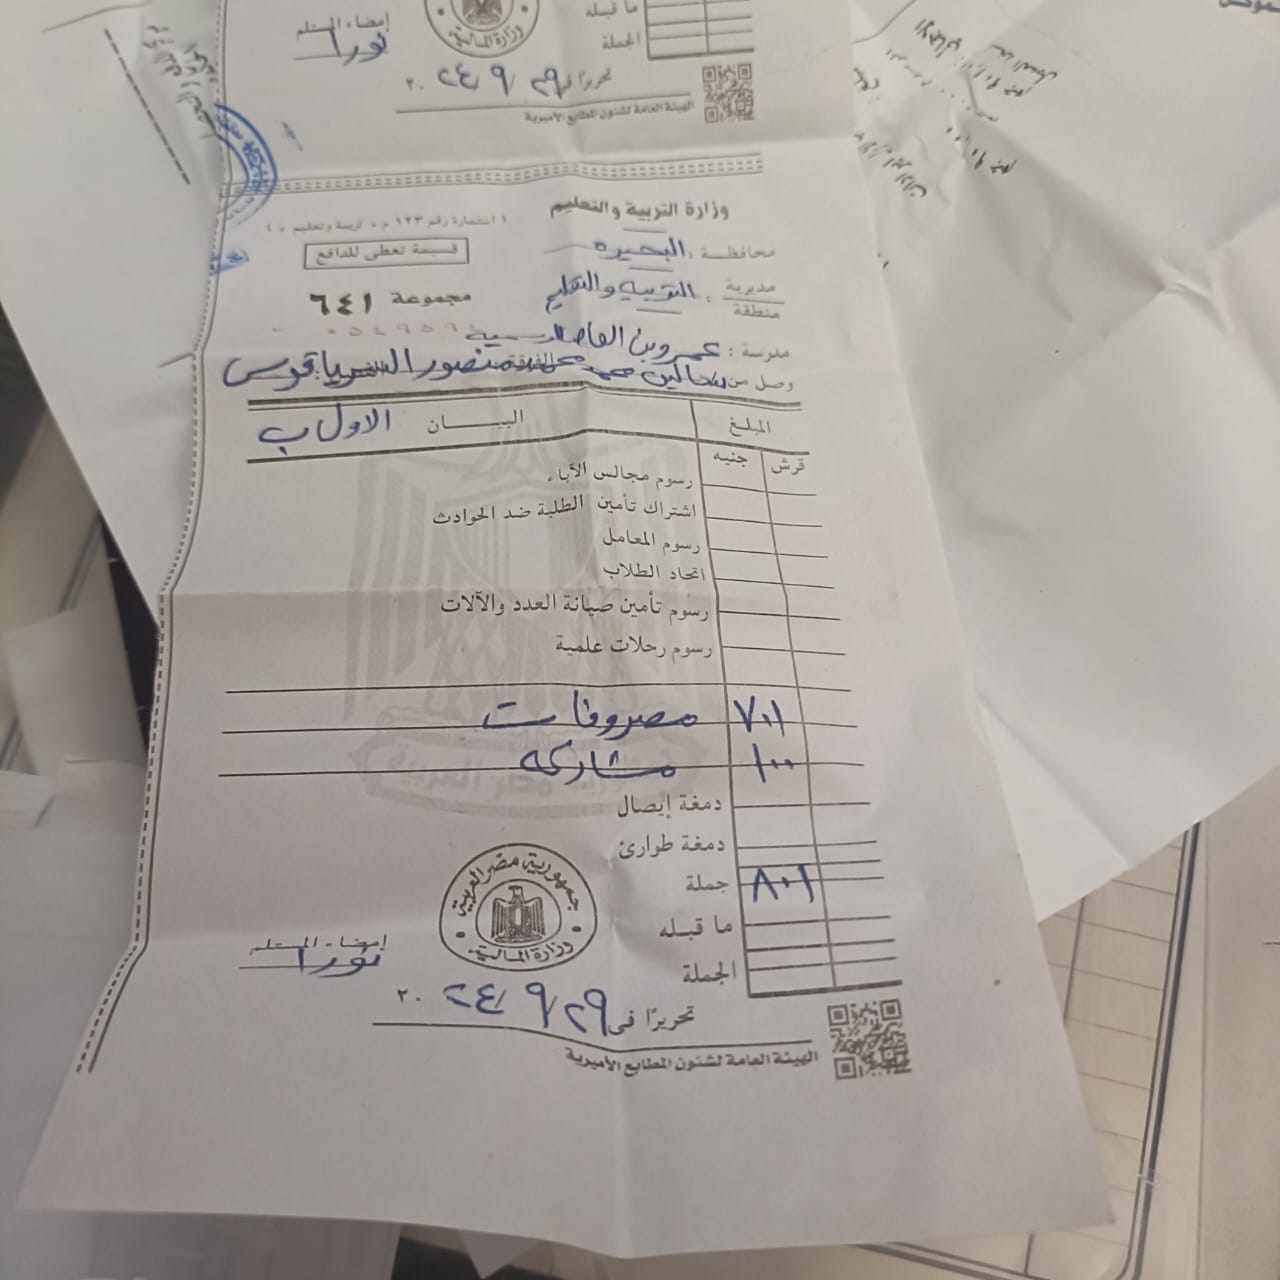 ما قبله
الجملة
إمضاء المستلم
نورا
وزارة المالية
تحريرًا فى ٢٩ / ٩ / ٢٠٢٤
الهيئة العامة لشئون المطابع الأميرية
وزارة التربية والتعليم
محافظة : البحيره
قسيمة تعطى للدافع
مديرية
منطقة : التربيه والتعليم
مجموعة ٦٤١
مدرسة : عمرو بن العاص الرسمية
وصل من محمد منصور
المبلغ
البيان الاول ب
قرش جنيه
رسوم مجالس الآباء
اشتراك تأمين الطلبة ضد الحوادث
رسوم المعامل
اتحاد الطلاب
رسوم تأمين صيانة العدد والآلات
رسوم رحلات علمية
٧٠١ مصروفات
١٠٠ مشاركه
دمغة إيصال
دمغة طوارئ
جملة ٨٠١
ما قبله
الجملة
جمهورية مصر العربية
وزارة المالية
إمضاء المستلم
نورا
تحريرًا فى ٢٩ / ٩ / ٢٠٢٤
الهيئة العامة لشئون المطابع الأميرية